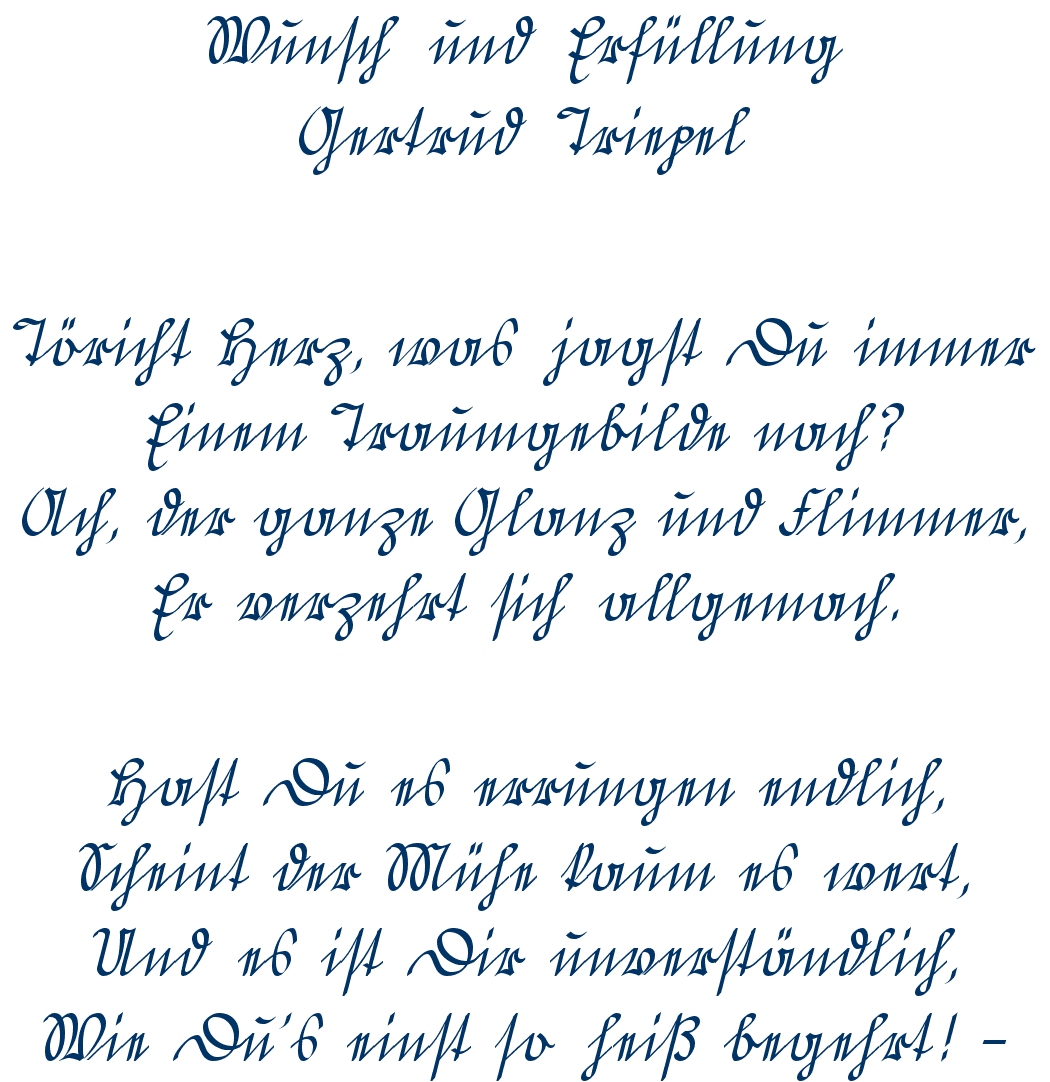 Wunsch und Erfüllung
Gertrud Triepel
Töricht Herz, was jagst Du immer
Einem Traumgebilde nach?
Ach, der ganze Glanz und Flimmer,
Er verzehrt sich allgemach.
Hast Du es errungen endlich,
Scheint der Mühe kaum es wert,
Und es ist Dir unverständlich,
Wie Du's einst so heiß begehrt! –